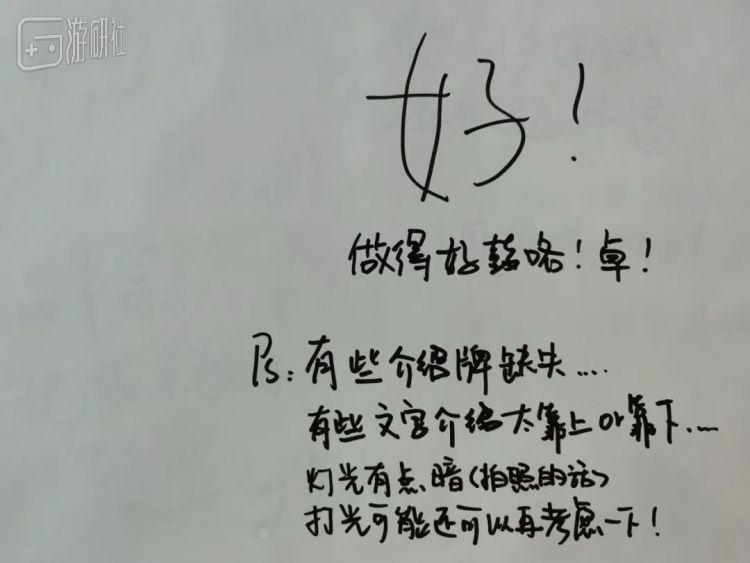 游研社
好!
做得好鼓咯!卓!
Ps:有些介绍牌缺失....
有些文字介绍太靠上or靠下....
灯光有点暗(拍照的话)
打光可能还可以再考虑一下!